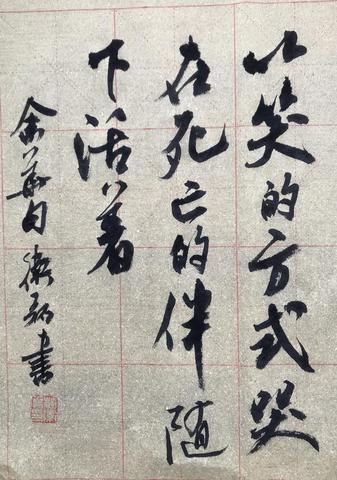 以笑的方式哭
在死亡的伴随
下活着
余华曰
书